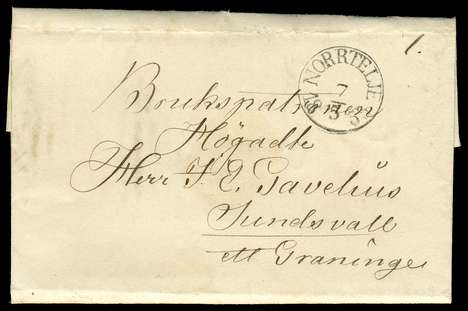 1.
NORRTELJE
7
3
Brukspatronen
Högädle
Herr J. E. Gavelius
Sundsvall
ett Graninge